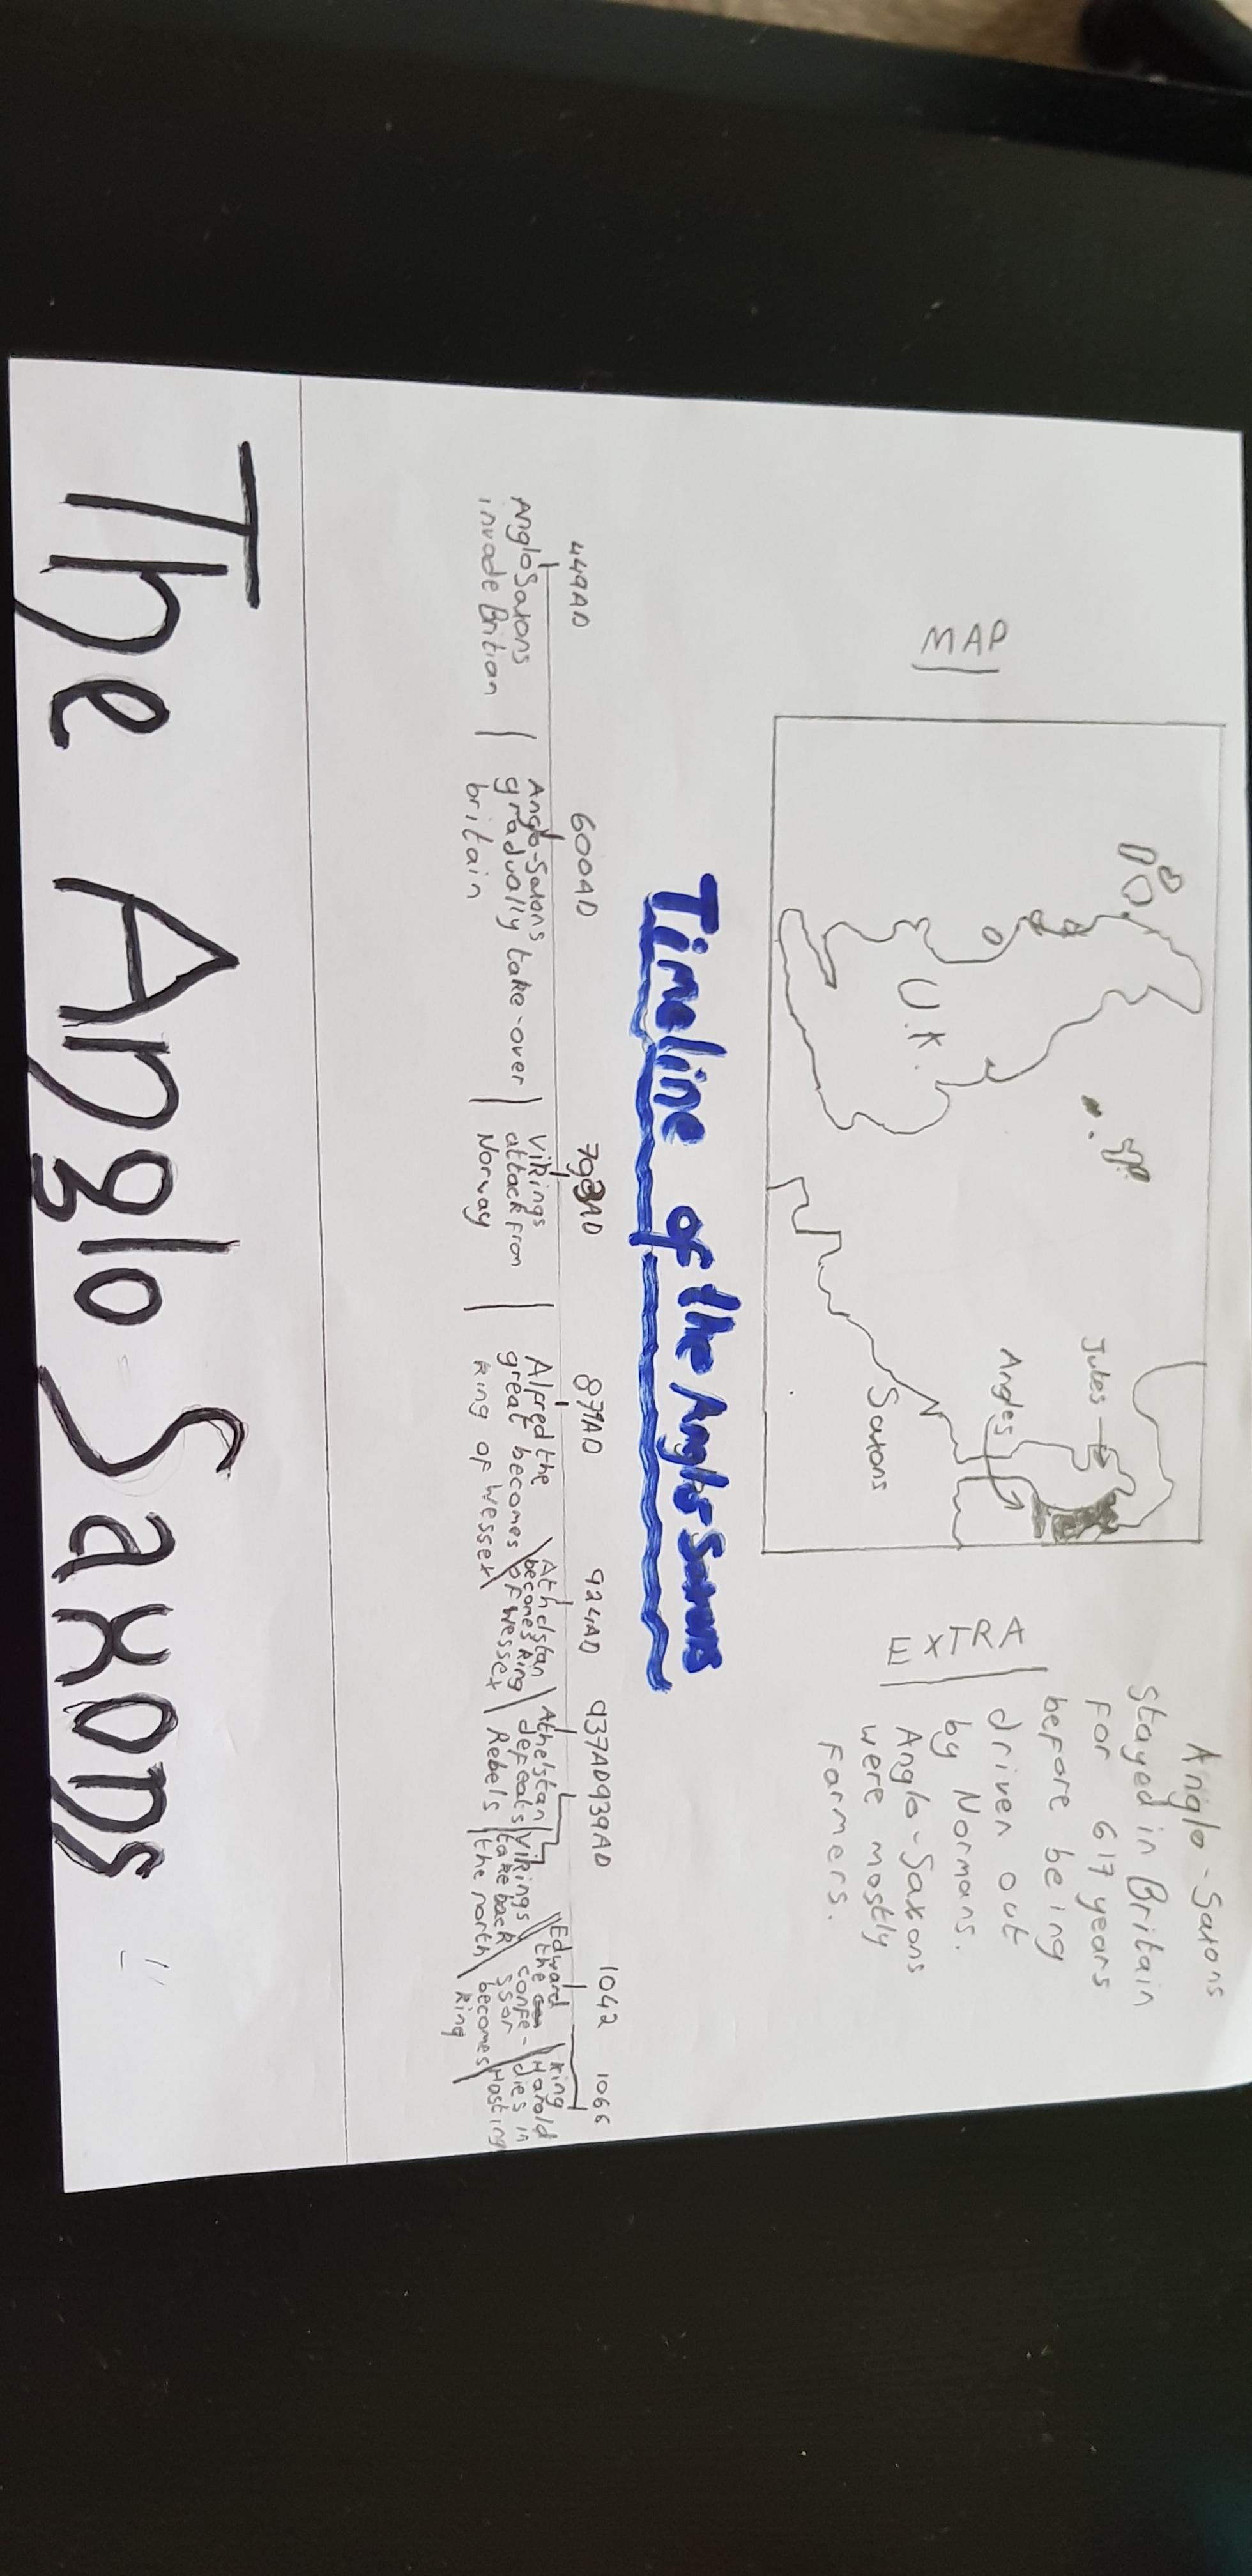 MAP
U.K.
Jutes
Angles
Saxons
EXTRA
Anglo-Saxons
stayed in Britain
for 617 years
before being
driven out
by Normans.
Anglo-Saxons
were mostly
farmers.
Timeline of the Anglo Saxons
449AD 600AD 793AD 871AD 924AD 937AD 939AD 1042 1066
AngloSaxons
invade Britian
Anglo-Saxons
gradually take-over
britain
Vikings
attack from
Norway
Alfred the
great becomes
king of wessex
Athelstan
becomes king
of wessex
Athelstan
defeats
Rebels
Vikings
take back
the north
Edward
the confe-
ssor
becomes
king
king
Harold
dies in
Hasting
The Anglo-Saxons